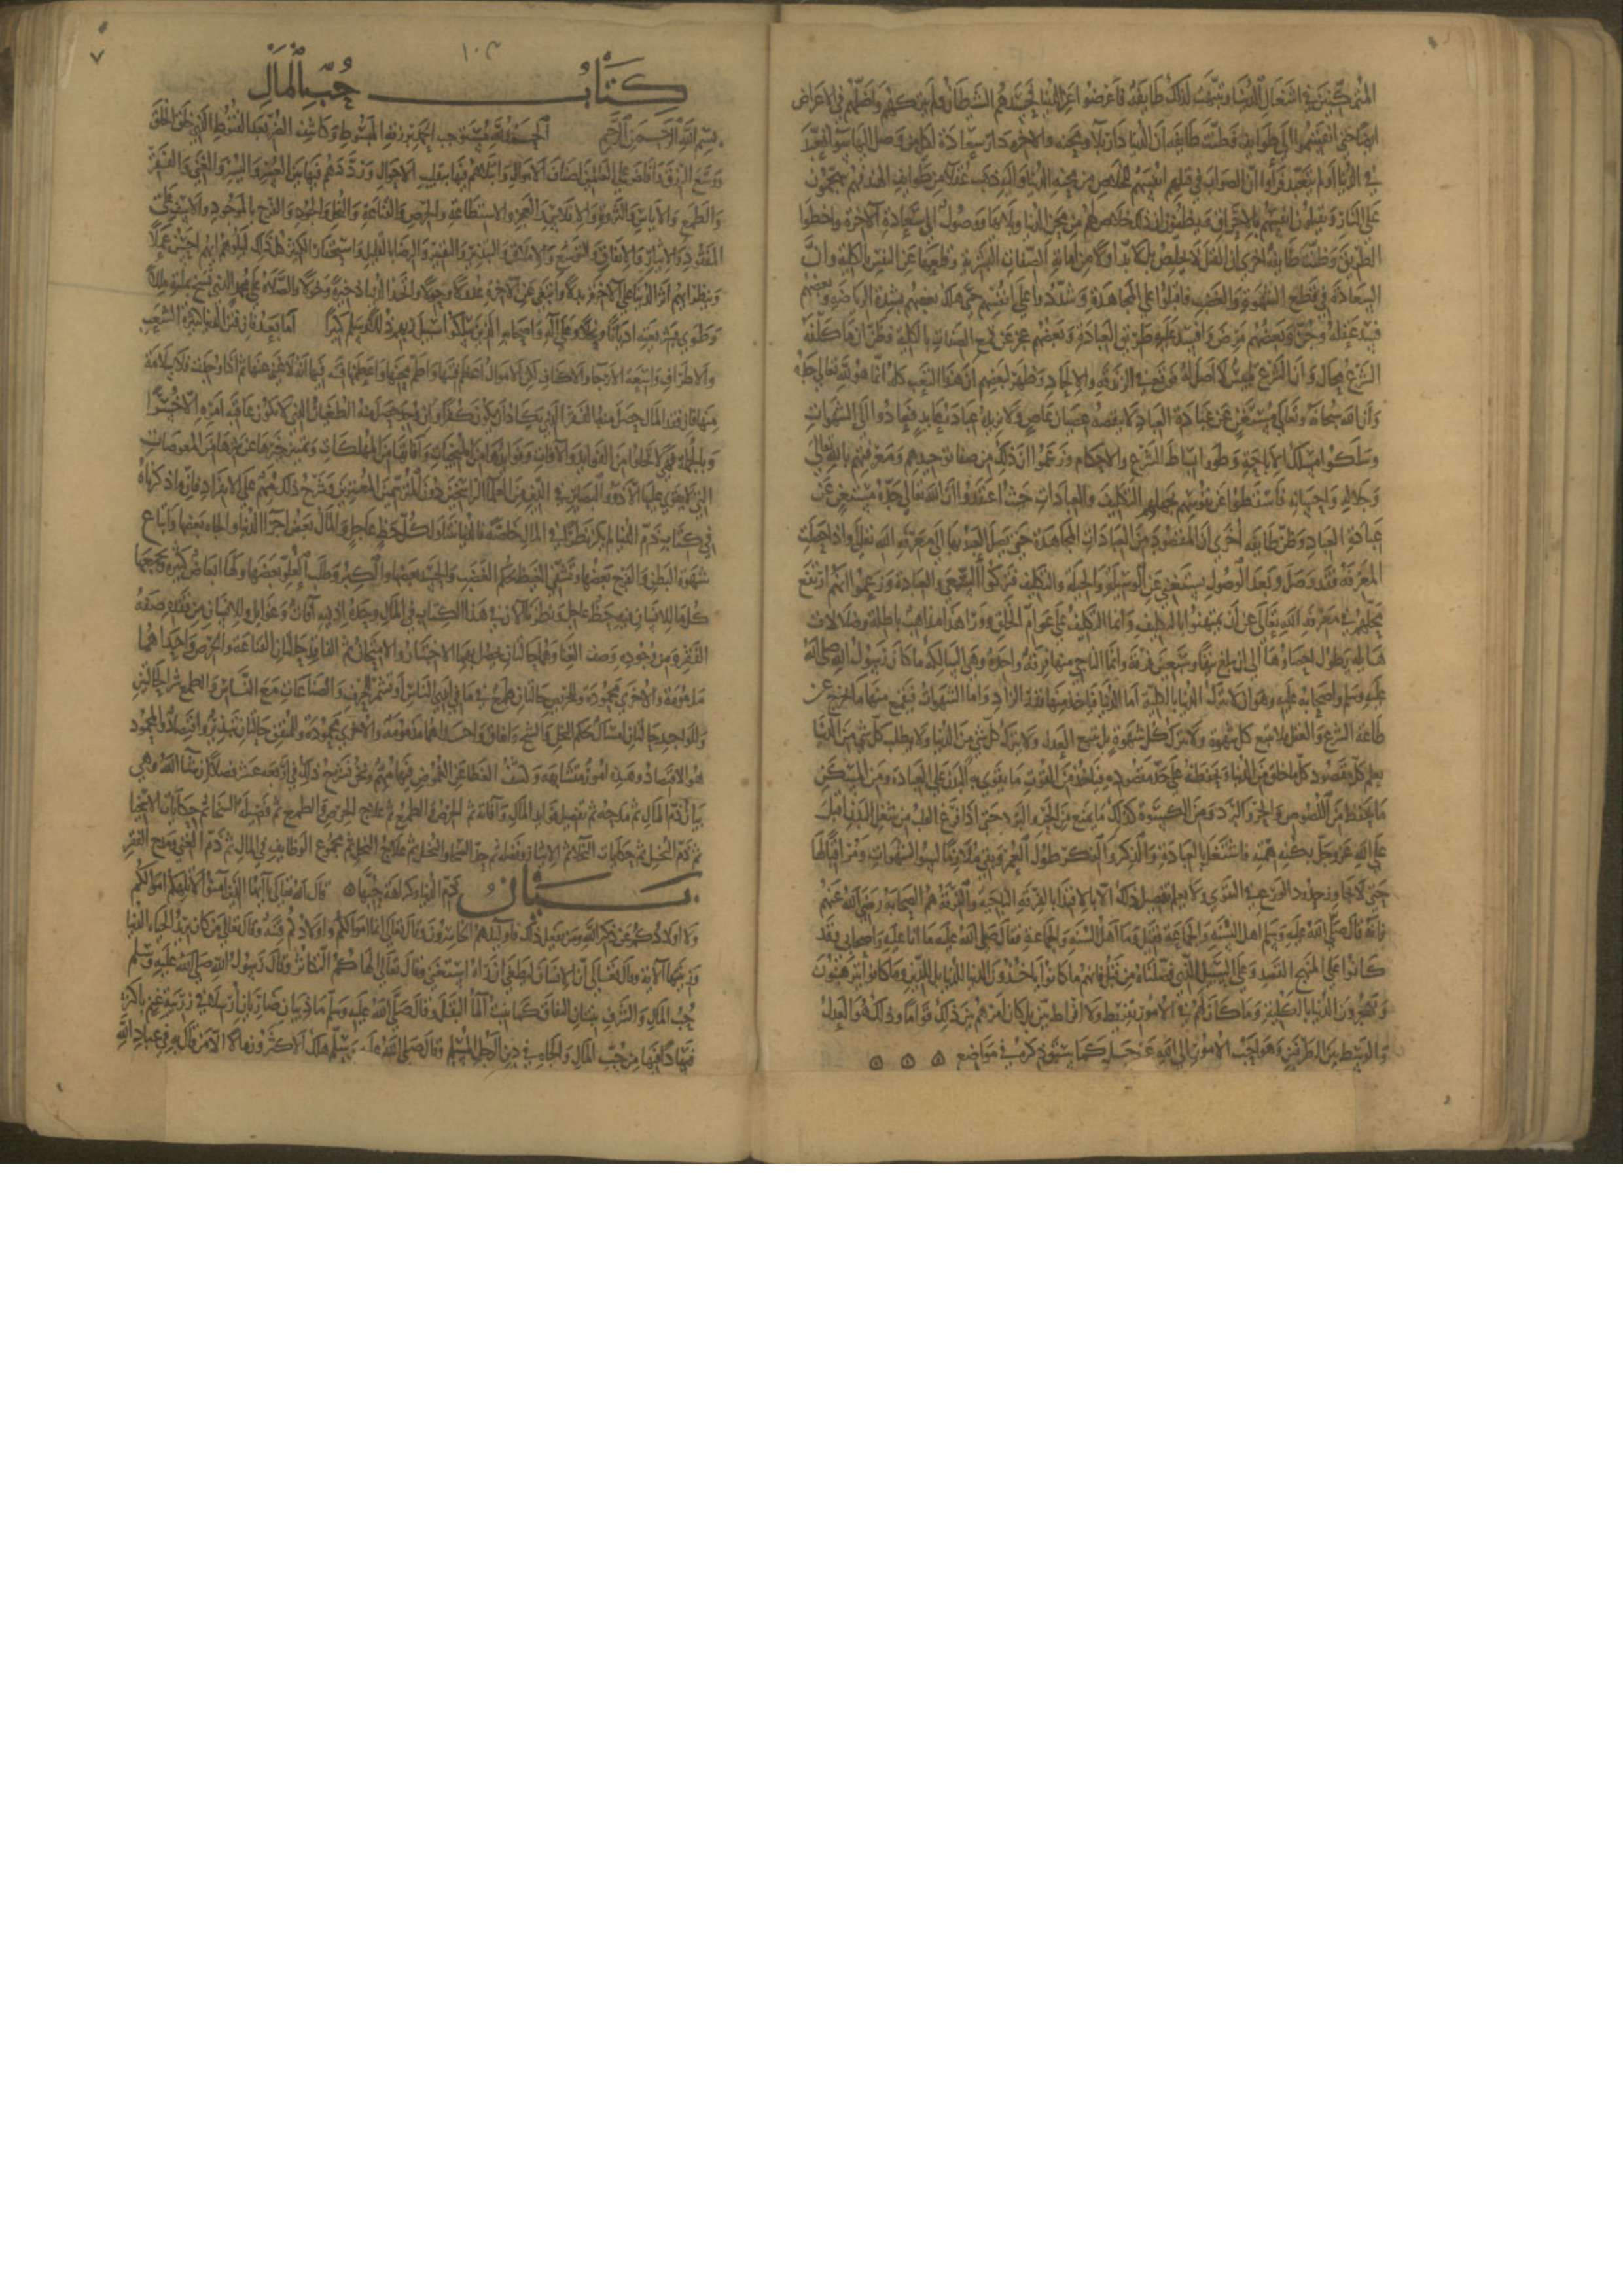 المنهمكين في اشتغال الدنيا وتنبهت لذلك طايفة فاعرضوا عن الدنيا لحسدهم الشيطان فلم يتركهم واضلهم في الاعراض
ايضا حتى انقسموا الى طوايف فظنت طايفة ان الدنيا دار بلاء ومحنة والاخرة دار سعادة لكل من وصل اليها سوا تعبد
في الدنيا او لم يتعبد فراوا ان الصواب في قتلهم انفسهم للخلاص من محنة الدنيا واليه ذهب طوايف من الهند فهم يتهجمون
على النار ويقتلون انفسهم بالاحراق ويظنون ان ذلك خلاص لهم من محن الدنيا
وظنت طايفة اخرى ان القتل لا يخلص بل لا بد اولا من اماتة الصفات البشرية وقلعها عن النفس بالكلية وان
السعادة في قطع الشهوة والغضب فاقبلوا على المجاهدة وشددوا على انفسهم حتى هلك بعضهم بشدة الرياضة وبعضهم
فسد عقله وجن وبعضهم مرض وانسد عليه طريق العبادة وبعضهم عجز عن قمع الصفات بالكلية فظن ان ما كلفه
الشرع محال وان الشرع تلبيس لا اصل له فوقع في الزندقة والالحاد وظهر لبعضهم ان هذا التعب كله انما هو لله تعالى
وان الله سبحانه وتعالى مستغن عن عبادة العباد لا ينقصه عصيان عاص ولا يزيده عبادة عابد فعادوا الى الشهوات
وسلكوا مسلك الاباحة وطووا بساط الشرع والاحكام وزعموا ان ذلك من صفا توحيدهم
عبادة العباد وظن طايفة اخرى ان المقصود من العبادات المجاهدة حتى يصل العبد بها الى معرفة الله تعالى واذا حصلت
المعرفة فقد وصل وبعد الوصول يستغني عن الوسيلة والحيلة فتركوا السعي والعبادة وزعموا انهم ارتفع
محلهم في معرفة الله تعالى عن ان يمتهنوا بالتكليف وانما التكليف على عوام الخلق وورا هذا مذاهب باطلة وضلالات
هايلة يطول احصاوها الى ان يبلغ نيفا وسبعين فرقة وانما الناجي منها فرقة واحدة وهي السالكة ما كان رسول الله صلى الله
عليه وسلم واصحابه عليه وهو ان لا يترك الدنيا بالكلية اما الدنيا فياخذ منها قدر الزاد واما الشهوات فيقمع منها ما يخرج عن
طاعة الشرع والعقل فلا يتبع كل شهوة ولا يترك كل شهوة بل يتبع العدل ولا يترك كل شي من الدنيا ولا يطلب كل شي من الدنيا
بل يعلم مقصود كل ما خلق من الدنيا ويحفظه على حد مقصوده فياخذ من القوت ما يقوي به البدن على العبادة ومن المسكن
ما يحفظ من اللصوص والحر والبرد ومن الكسوة كذلك ما يمنع من الحر والبرد حتى اذا فرغ القلب من شغل البدن اقبل
على الله عز وجل بكنه همته فاشتغل بالعبادة والذكر والفكر طول العمر وبقي ملازما لسياسة الشهوات ومراقبا لها
حتى لا يجاوز حدود الورع والتقوى ولا يعلم تفصيل ذلك الا بالاقتدا بالفرقة الناجية والفرقة هم الصحابة رضي الله عنهم
فانه قال صلى الله عليه وسلم اهل السنة والجماعة فقيل وما اهل السنة والجماعة فقال صلى الله عليه ما انا عليه واصحابي وقد
كانوا على المنهج القصد وعلى السبيل الذي فصلناه من قبل فانهم ما كانوا ياخذون الدنيا للدنيا بل للدين وما كانوا يترهبون
ويهجرون الدنيا بالكلية وما كان لهم في الامور تفريط ولا افراط بل كان امرهم بين ذلك قواما وذلك هو العدل
والوسط بين الطرفين وهو احب الامور الى الله عز وجل كما سبق ذكره في مواضع
٧
١٠٣
كتاب حب المال
بسم الله الرحمن الرحيم الحمد لله مستوجب الحمد برزقه المبسوط وكاشف الضر بعد القنوط الذي خلق الخلق
ووسع الرزق وافاض على العالمين اصناف الاموال وابتلاهم فيها بتقلب الاحوال ورددهم فيها بين العسر واليسر والغنى والفقر
والطمع والاياس والثروة والافلاس والعجز والاستطاعة والحرص والقناعة والبخل والجود والفرح بالموجود والاسف على
المفقود والايثار والانفاق والتوسع والاملاق والتبذير والتقتير والرضا بالقليل واستحقار الكثير كل ذلك ليبلوهم ايهم احسن عملا
وينظر ايهم اثر الدنيا على الاخرة بدلا وابتغى عن الاخرة عدولا وحولا واتخذ الدنيا ذخيرة وخولا والصلاة على محمد الذي نسخ بملته مللا
وطوى بشريعته اديانا ونحلا وعلى اله واصحابه الذين سلكوا سبيل ربهم ذللا وسلم كثيرا اما بعد فان فتن الدنيا كثيرة الشعب
والاطراف واسعة الارجا والاكناف لكن الاموال اعظم فتنها واطم محنها واعظم فتنة فيها انه لا غنى عنها ثم اذا وجدت فلا سلامة
منها فان فقد المال حصل منه الفقر الذي يكاد ان يكون كفرا وان وجد حصل منه الطغيان الذي لا يكون عاقبة امره الا خسرا
وبالجملة فهي لا تخلوا من الفوايد والافات وفوايدها من المنجيات وافاتها من المهلكات وتمييز خيرها عن شرها من المعوصات
التي لا يقوى عليها الا ذوو البصاير في الدين من العلما الراسخين دون المترسمين المغترين وشرح ذلك مهم على الانفراد فان ما ذكرناه
في كتاب ذم الدنيا لم يكن نظرا في المال خاصة فالدنيا تتناول كل حظ عاجل والمال بعض اجزا الدنيا والجاه بعضها واتباع
شهوة البطن والفرج بعضها وتشفي الغيظ بحكم الغضب والحسد بعضها والكبر وطلب العلو بعضها ولها ابعاض كثيرة يجمعها
كل ما للانسان فيه حظ عاجل ونظرنا الان في هذا الكتاب في المال وحده اذ فيه افات وغوايل وللانسان من فقده صفة
الفقر ومن وجوده وصف الغنا وهما حالتان يحصل بهما الاختبار والامتحان ثم الفاقد حالتان القناعة والحرص واحداهما
مذمومة والاخرى محمودة وللحريص حالتان طمع في ما في ايدي الناس او تشمر للحرف والصناعات مع الناس والطمع شر الحالتين
وللواجد حالتان امساك بحكم البخل والشح وانفاق واحداهما مذمومة والاخرى محمودة وللمنفق حالتان تبذير واقتصاد والمحمود
هو الاقتصاد وهذه امور متشابهة وكشف الغطا عن الغموض فيها مهم ونحن نشرح ذلك في اربعة عشر فصلا ان شا الله وهي
بيان ذم المال ثم مدحه ثم تفصيل فوايد المال وافاته ثم الحرص والطمع ثم علاج الحرص والطمع ثم فضيلة السخا ثم حكايات الاسخيا
ثم ذم البخل ثم حكايات البخلا ثم الايثار وفضله ثم حد السخا والبخل ثم علاج البخل ثم مجموع الوظايف في المال ثم ذم الغنى ومدح الفقر
بيان ذم الدنيا وكراهة حبها قال الله تعالى يا ايها الذين امنوا لا تلهكم اموالكم
ولا اولادكم عن ذكر الله ومن يفعل ذلك فاوليك هم الخاسرون وقال تعالى انما اموالكم واولادكم فتنة وقال تعالى من كان يريد الحياة الدنيا
وزينتها الاية وقال تعالى ان الانسان ليطغى ان راه استغنى وقال تعالى الهاكم التكاثر وقال رسول الله صلى الله عليه وسلم
حب المال والشرف ينبتان النفاق كما ينبت الماء البقل وقال صلى الله عليه وسلم ما ذيبان ضاريان ارسلا في زريبة غنم باكثر
فسادا فيها من حب المال والجاه في دين الرجل المسلم وقال صلى الله عليه وسلم هلك الاكثرون الا من قال به في عباد الله